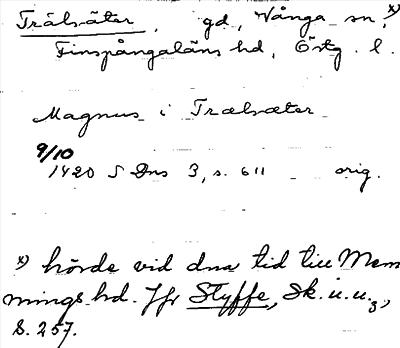 Trälsäter, gd, Vånga sn, x)
Finspångaläns hd, Östg. l.
Magnus i Trælsæter
9/10
1420 SDns 3, s. 611 orig.
x) hörde vid dna tid till Mem
mings hd. Jfr Styffe, Sk. u. u.3,
S. 257.